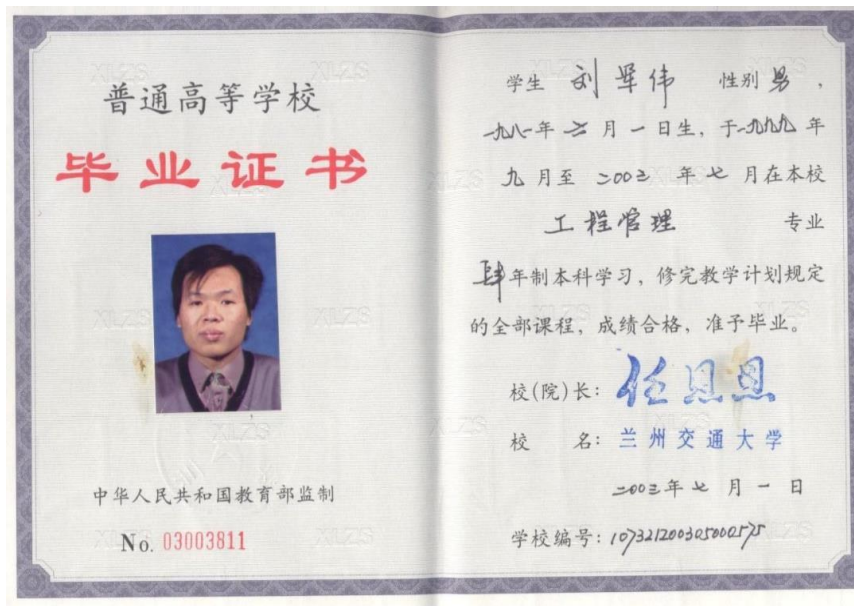 普通高等学校
毕业证书
中华人民共和国教育部监制
No. 03003811
学生 刘军伟 性别 男，
一九八一年 六 月 一 日生，于一九九九年
九 月至 二00三 年 七 月在本校
工程管理 专业
肆年制本科学习，修完教学计划规定
的全部课程，成绩合格，准予毕业。
校(院)长：任恩恩
校 名：兰州交通大学
二00三年 七 月 一 日
学校编号：107321200305000575
XLZS